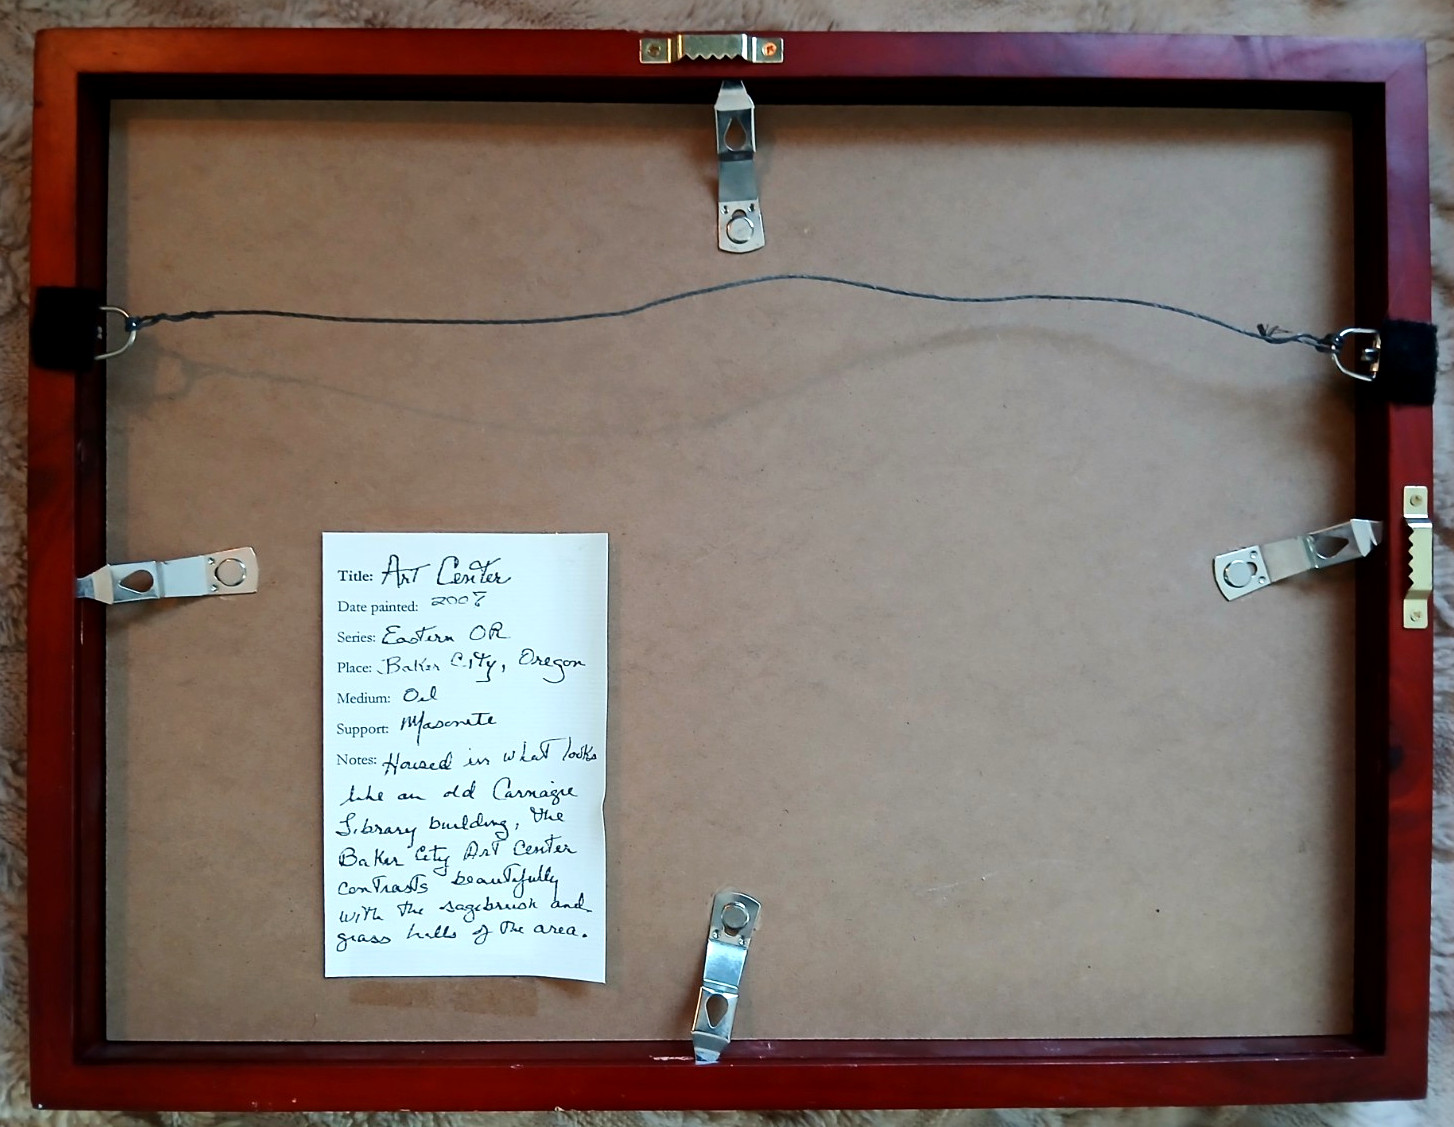 Title: Art Center
Date painted: 2008
Series: Eastern OR
Place: Baker City, Oregon
Medium: Oil
Support: Masonite
Notes: Housed in what looks
like an old Carnagie
Library building, the
Baker City Art Center
contrasts beautifully
with the sagebrush and
grass hills of the area.